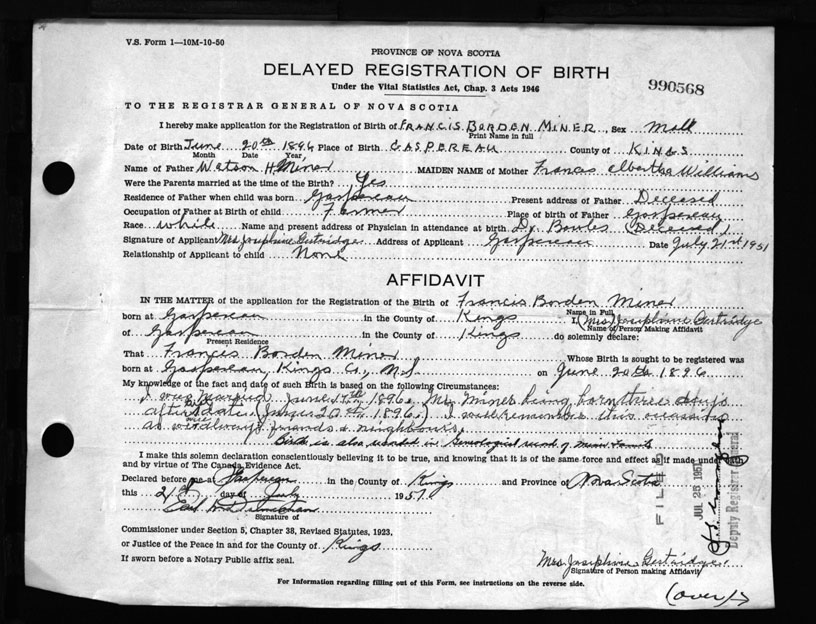 V.S. Form 1—10M-10-50
PROVINCE OF NOVA SCOTIA
DELAYED REGISTRATION OF BIRTH
990568
Under the Vital Statistics Act, Chap. 3 Acts 1946
TO THE REGISTRAR GENERAL OF NOVA SCOTIA
I hereby make application for the Registration of Birth of FRANCIS BORDEN MINER, Sex Male
Print Name in full
Date of Birth June 20th 1896 Place of Birth GASPEREAU County of KINGS
Month Date Year
Name of Father Watson H Miner MAIDEN NAME of Mother Frances Albertha Williams
Were the Parents married at the time of the Birth? Yes
Residence of Father when child was born Gaspereau Present address of Father Deceased
Occupation of Father at Birth of child Farmer Place of birth of Father Gaspereau
Race White Name and present address of Physician in attendance at birth Dr. Bowles (Deceased)
Signature of Applicant Mrs Josephine Gertridge Address of Applicant Gaspereau Date July 21st 1951
Relationship of Applicant to child None
AFFIDAVIT
IN THE MATTER of the application for the Registration of the Birth of Francis Borden Miner
Name in Full
born at Gaspereau in the County of Kings I (Mrs) Josephine Gertridge
Name of Person Making Affidavit
of Gaspereau in the County of Kings do solemnly declare:
Present Residence
That Francis Borden Miner Whose Birth is sought to be registered was
born at Gaspereau, Kings Co., N.S. on June 20th 1896
My knowledge of the fact and date of such Birth is based on the following Circumstances:
I was married June 17th 1896, Mr. Miner being born three days
after date (June 20th 1896.) I well remember this occasion
as we were always friends & neighbours.
Birth is also recorded in Genological record of Miner Family
I make this solemn declaration conscientiously believing it to be true, and knowing that it is of the same force and effect as if made under oath
and by virtue of The Canada Evidence Act.
Declared before me at Gaspereau in the County of Kings and Province of Nova Scotia
this 21st day of July 1951
Signature of
Commissioner under Section 5, Chapter 38, Revised Statutes, 1923,
or Justice of the Peace in and for the County of Kings
If sworn before a Notary Public affix seal.
FILED
JUL 25 1951
Deputy Registrar General
Mrs Josephine Gertridge
Signature of Person making Affidavit
For Information regarding filling out of this Form, see instructions on the reverse side.
(over)